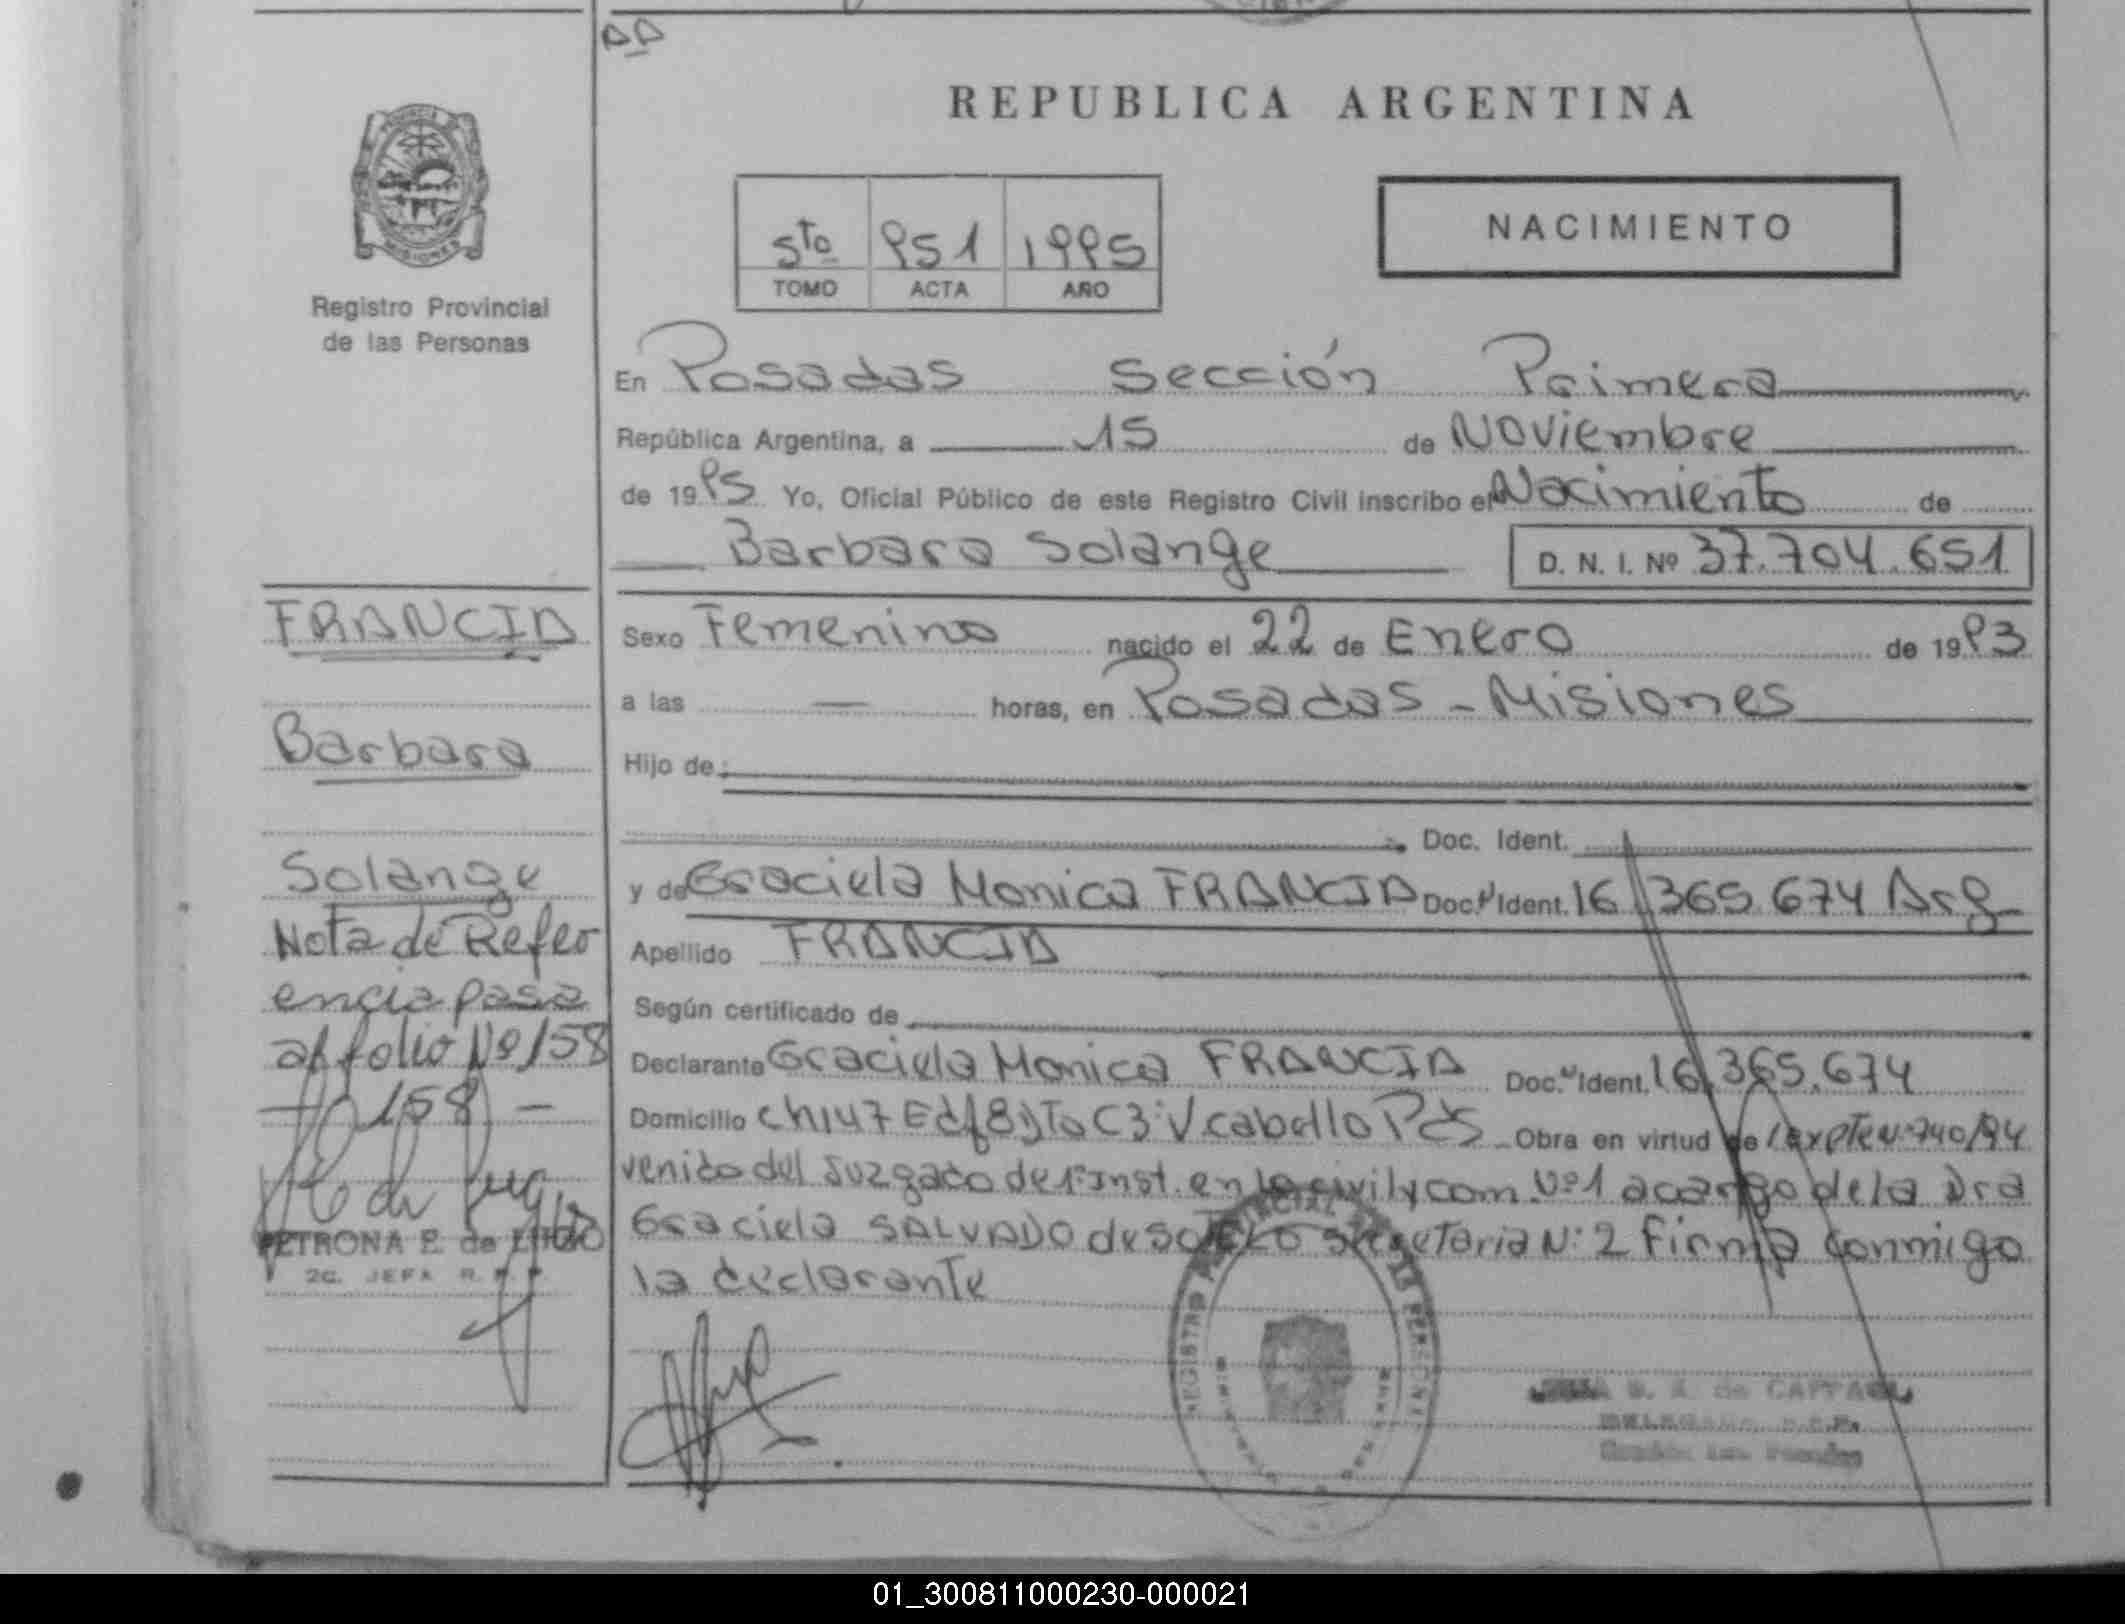 DD
REPUBLICA ARGENTINA
PROVINCIA DE
MISIONES
Registro Provincial
de las Personas
5to 951 1995
TOMO ACTA AÑO
NACIMIENTO
En Posadas Sección Primera
República Argentina, a 15 de Noviembre
de 1995 Yo, Oficial Público de este Registro Civil inscribo el Nacimiento de
Barbara Solange D. N. I. Nº 37.704.651
Sexo Femenino nacido el 22 de Enero de 1993
a las — horas, en Posadas - Misiones
Hijo de
Doc. Ident.
y de Graciela Monica FRANCIA Doc. Ident. 16.365.674 Arg
Apellido FRANCIA
Según certificado de
Declarante Graciela Monica FRANCIA Doc. Ident. 16.365.674
Domicilio ch147 Edf8 DTo C3 V. cabello Pds Obra en virtud de expte N: 740/94
venido del Juzgado de 1º Inst. en lo civil y com. Nº1 a cargo de la Dra
Graciela SALVADO de SOTELO secretaria N: 2 Firma conmigo
la declarante
FRANCIA
Barbara
Solange
Nota de Refer
encia pasa
al folio Nº 158
158 -
PETRONA E. de
2a. JEFA R. P. P.
REGISTRO PROVINCIAL DE LAS PERSONAS
de CAPPA
DELEGADA R.C.P.
01_300811000230-000021